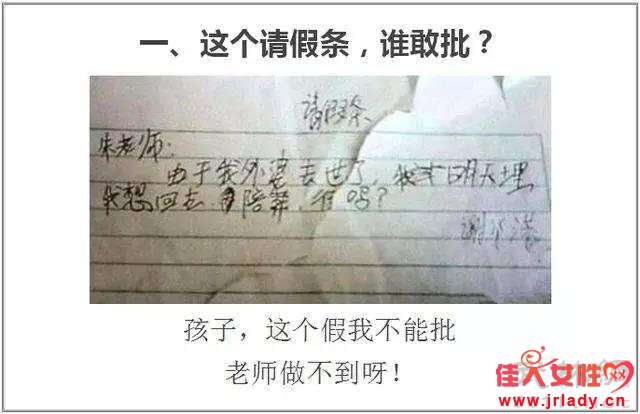 一、这个请假条，谁敢批？
请假条
朱老师：
由于我外婆去世了，我 明天埋
我想回去 陪葬，行吗？
孩子，这个假我不能批
老师做不到呀！
佳人女性网
www.jrlady.cn